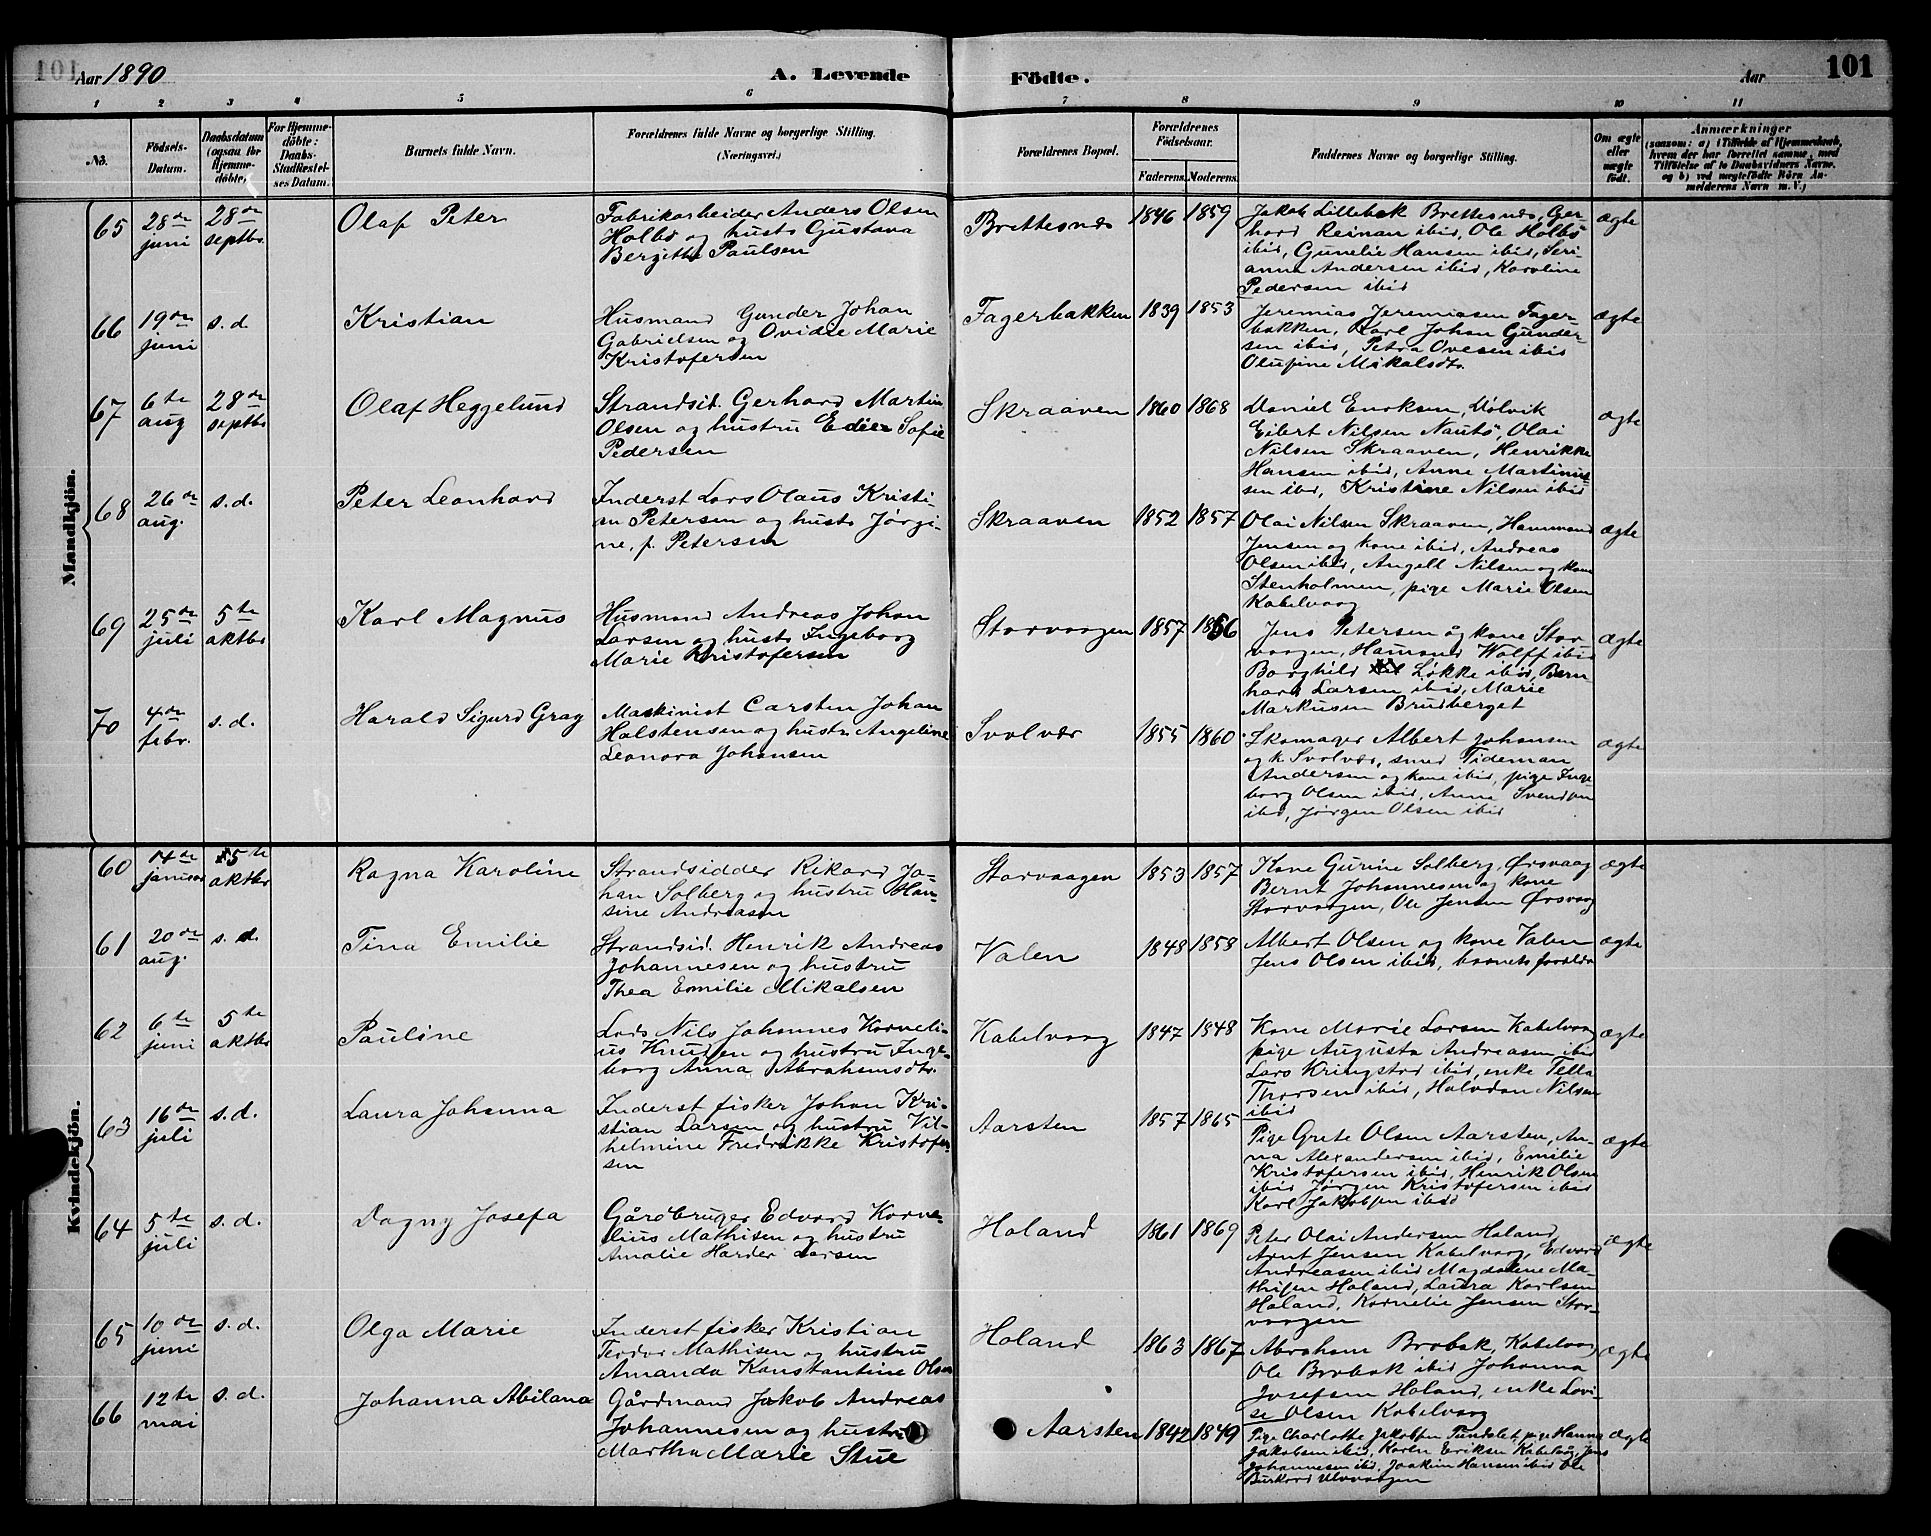 101 Aar 1890 A. Levende Födte. Aar 101
1 2 3 4 5 6 7 8 9 10 11
No. Födsels-Datum. Daabsdatum (ogsaa for Hjemme-döbte). For Hjemme-döbte: Daabs-Stadfæstel-ses Datum. Barnets fulde Navn. Forældrenes fulde Navne og borgerlige Stilling. (Næringsvei.) Forældrenes Bopæl. Forældrenes Födselsaar. Faderens. Moderens. Faddernes Navne og borgerlige Stilling. Om ægte eller uægte födt. Anmærkninger (saasom: a) i Tilfælde af Hjemmedaab, hvem der har forrettet samme, med Tilföielse af to Daabsvidners Navne, og b) ved uægtefödte Börn An-melderens Navn m. V.)
Mandkjön.
65 28de juni 28de septbr. Olaf Peter
Fabrikarbeider Anders Olsen
Holbø og hustr Gustava
Bergitte Paulsen
Brettesnæs 1846 1859
Jakob Lillebak Brettesnæs, Ger-
hard Reinan ibid, Ole Holbø
ibid, Gunelie Hansen ibid, Seri-
anna Andersen ibid, Karoline
Pedersen ibid
ægte
66 19de juni s.d. Kristian
Husmand Gunder Johan
Gabrielsen og Ovidie Marie
Kristofersen
Fagerbakken 1839 1853
Jeremias Jeremiasen Fager-
bakken, Karl Johan Gunder-
sen ibid, Petra Ovesen ibid
Olufine Mikalsdtr.
ægte
67 6te aug 28de septbr Olaf Heggelund
Strandsid. Gerhard Martin
Olsen og hustru Edier Sofie
Pedersen
Skraaven 1860 1868
Daniel Enoksen, Uolvik
Eibert Nilsen Nautø, Olai
Nilsen Skraaven, Henrikke
Hansen ibid, Anne Martinus-
sen ibid, Kristine Nilsen ibid
ægte
68 26de aug. s.d. Peter Leonhard
Inderst Lars Olaus Kristi-
an Petersen og hustr Jørgi-
ne, f. Petersen
Skraaven 1852 1857
Olai Nilsen Skraaven, Hammond
Jensen og kone ibid, Andreas
Olsen ibid, Angell Nilsen og kone
Stenholmen, pige Marie Olsen
Kabelvaag
ægte
69 25de juli 5te oktbr Karl Magnus
Husmand Andreas Johan
Larsen og hustr Ingeborg
Marie Kristofersen
Storvaagen 1857 1856
Jens Petersen og kone Stor-
vaagen, Hamond Wolff ibid
Borghild Løkke ibid, Bern-
hard Larsen ibid, Marie
Markusen Brudberget
ægte
70 4de febr. s.d. Harald Sigurd Grag
Maskinist Carsten Johan
Halstensen og hustr Angeline
Leonora Johansen
Svolvær 1855 1860
Skomager Albert Johansen
og k. Svolvær, smed Tideman
Andersen og kone ibid, pige Inge-
borg Olsen ibid, Anna Svendsen
ibid, Jørgen Olsen ibid
ægte
Kvindekjön.
60 14de januar 5te oktbr Ragna Karoline
Strandsidder Rikard Jo-
han Solberg og hustru Han-
sine Andreasen
Storvaagen 1853 1857
Kone Gurine Solberg, Ørsvaag
Bernt Johannesen og kone
Storvaagen, Ole Jensen Ørsvaag
ægte
61 20de aug. s.d. Tina Emilie
Strandsid. Henrik Andreas
Johannesen og hustru
Thea Emilie Mikalsen
Valen 1848 1858
Albert Olsen og kone Valen
Jens Olsen ibid, barnets forældre
ægte
62 6te juni 5te oktbr Pauline
Lods Nils Johannes Korneli-
us Knudsen og hustru Inge-
borg Anna Abrahamsdtr.
Kabelvaag 1847 1848
Kone Marie Larsen Kabelvaag
pige Augusta Andreasen ibid
Lars Kringstad ibid, enke Tella
Thorsen ibid, Halvdan Nilsen
ibid
ægte
63 16de juli s.d. Laura Johanna
Inderst fisker Johan Kri-
stian Larsen og hustru Vil-
helmine Fredrikke Kristofer-
sen
Aarsten 1857 1865
Pige Grete Olsen Aarsten, An-
na Alexandersen ibid, Emilie
Kristofersen ibid, Henrik Olsen
ibid Jørgen Kristofersen ibid
Karl Jakobsen ibid
ægte
64 5te juli s.d. Dagny Josefa
Gårdbruger Edvard Korne-
lius Mathisen og hustru
Amalie Harder Larsen
Holand 1861 1869
Peter Olai Andersen Holand,
Arnt Jensen Kabelvaag, Edvard
Andreasen ibid Magdalene Ma-
thisen Holand, Laura Karlsen
Holand, Kornelie Jensen Stor-
vaagen
ægte
65 10de juni s.d. Olga Marie
Inderst fisker Kristian
Teodor Mathisen og hustru
Amanda Konstantine Olsen
Holand 1863 1867
Abraham Brobak, Kabelvaag
Ole Brobak ibid Johanna
Josefsen Holand, enke Lovi-
se Olsen Kabelvaag
ægte
66 12te mai s.d. Johanna Abilana
Gårdmand Jakob Andreas
Johannesen og hustru
Martha Marie Stue
Aarsten 1842 1849
Pige Charlotte Jakobsen Tundalet, pige Hanna
Jakobsen ibid, Karen Eriksen Kabelvåg, Jens
Johannesen ibid, Joakim Hansen ibid Ole
Burkard Ulvvaagen
ægte